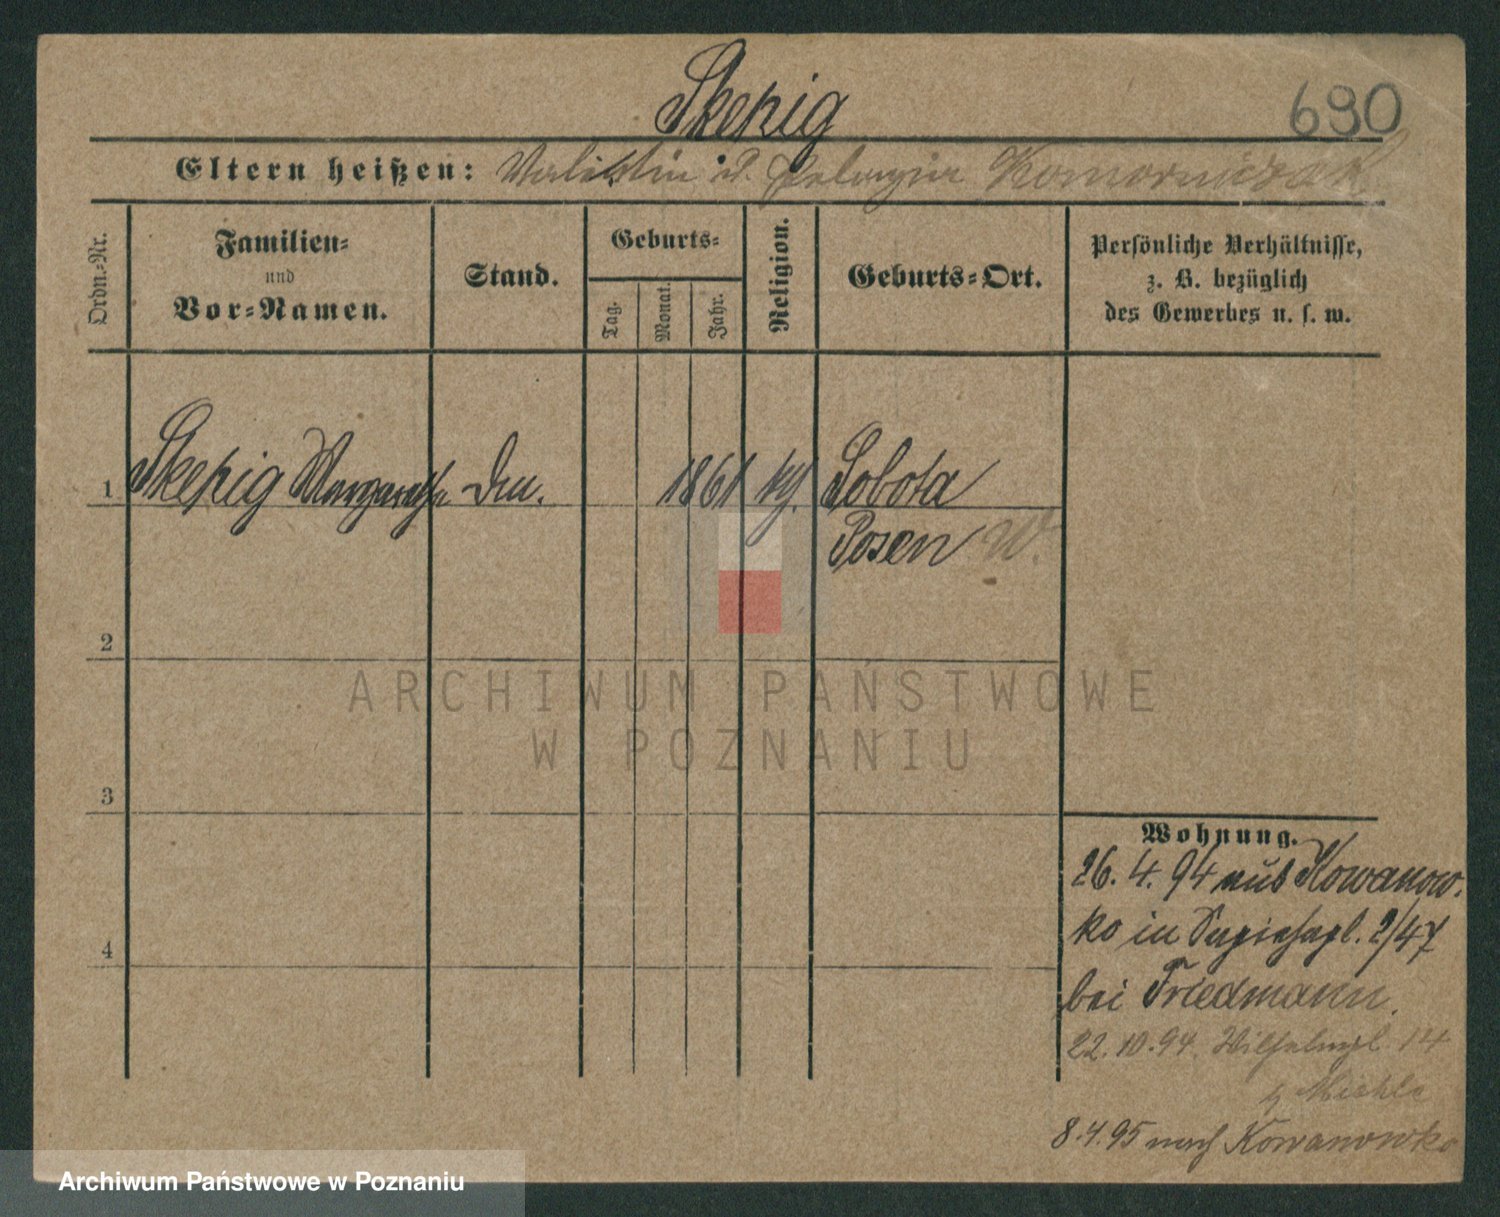 Skepig
690
Eltern heißen: Valentin u. Pelagia Komorniczak
Ordn.-Nr.
Familien-
und
Vor-Namen.
Stand.
Geburts-
Tag.
Monat.
Jahr.
Religion.
Geburts-Ort.
Persönliche Verhältnisse,
z. B. bezüglich
des Gewerbes u. s. w.
1 Skepig Margarethe 1861 Sobota
Posen W.
2
ARCHIWUM PAŃSTWOWE
W POZNANIU
3
4
Wohnung.
26. 4. 94 aus Kowanow-
ko in Sapiehapl. 2/47
bei Friedmann.
22. 10. 94. Wilhelmspl. 14
8. 4. 95 nach Kowanowko
Archiwum Państwowe w Poznaniu